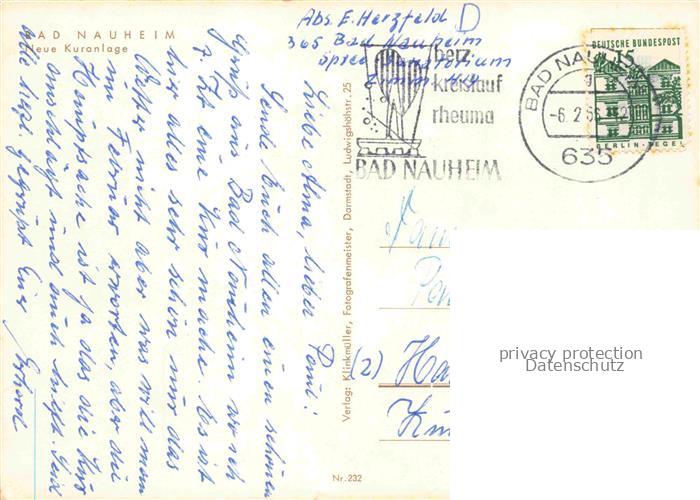 BAD NAUHEIM
Neue Kuranlage
Abs. E. Herzfeld D
365 Bad Nauheim
Sanatorium
Zimm.
herz
kreislauf
rheuma
BAD NAUHEIM
BAD NAUHEIM
-6. 2
635
DEUTSCHE BUNDESPOST
15
BERLIN-TEGEL
Liebe Alma, lieber Paul!
Sende Euch allen einen schönen
Gruß aus Bad Nauheim wo ich
z. Zt. eine Kur mache. Es ist
hier alles sehr schön nur das
Wetter nicht aber was will man
im Februar erwarten, aber die
Hauptsache ist ja das die Kur
anschlägt und auch hilft. Seid
alle herzl. gegrüßt Euer Erhard
Verlag: Klinkmüller, Fotografenmeister, Darmstadt, Ludwigshöhstr. 25
Fam
(2) Ha
Nr. 232
privacy protection
Datenschutz